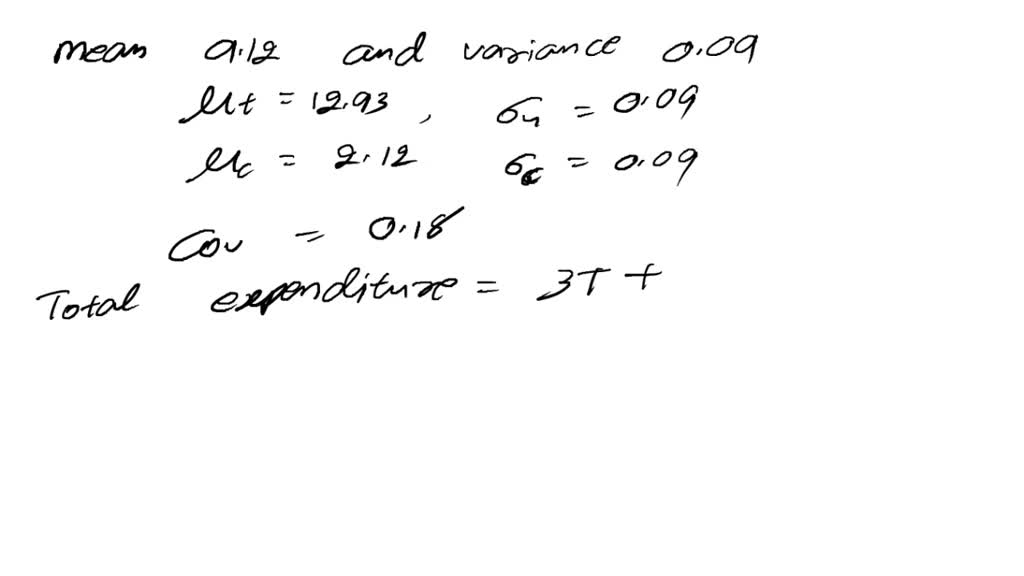 mean 9.12 and variance 0.09
μt = 12.93, σ4 = 0.09
μc = 2.12 σc = 0.09
Cov = 0.18
Total expenditure = 3T +